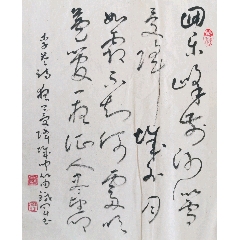 回乐峰前沙似雪
受降城外月
如霜不知何处吹
芦管一夜征人尽望乡
李益诗夜上受降城闻笛